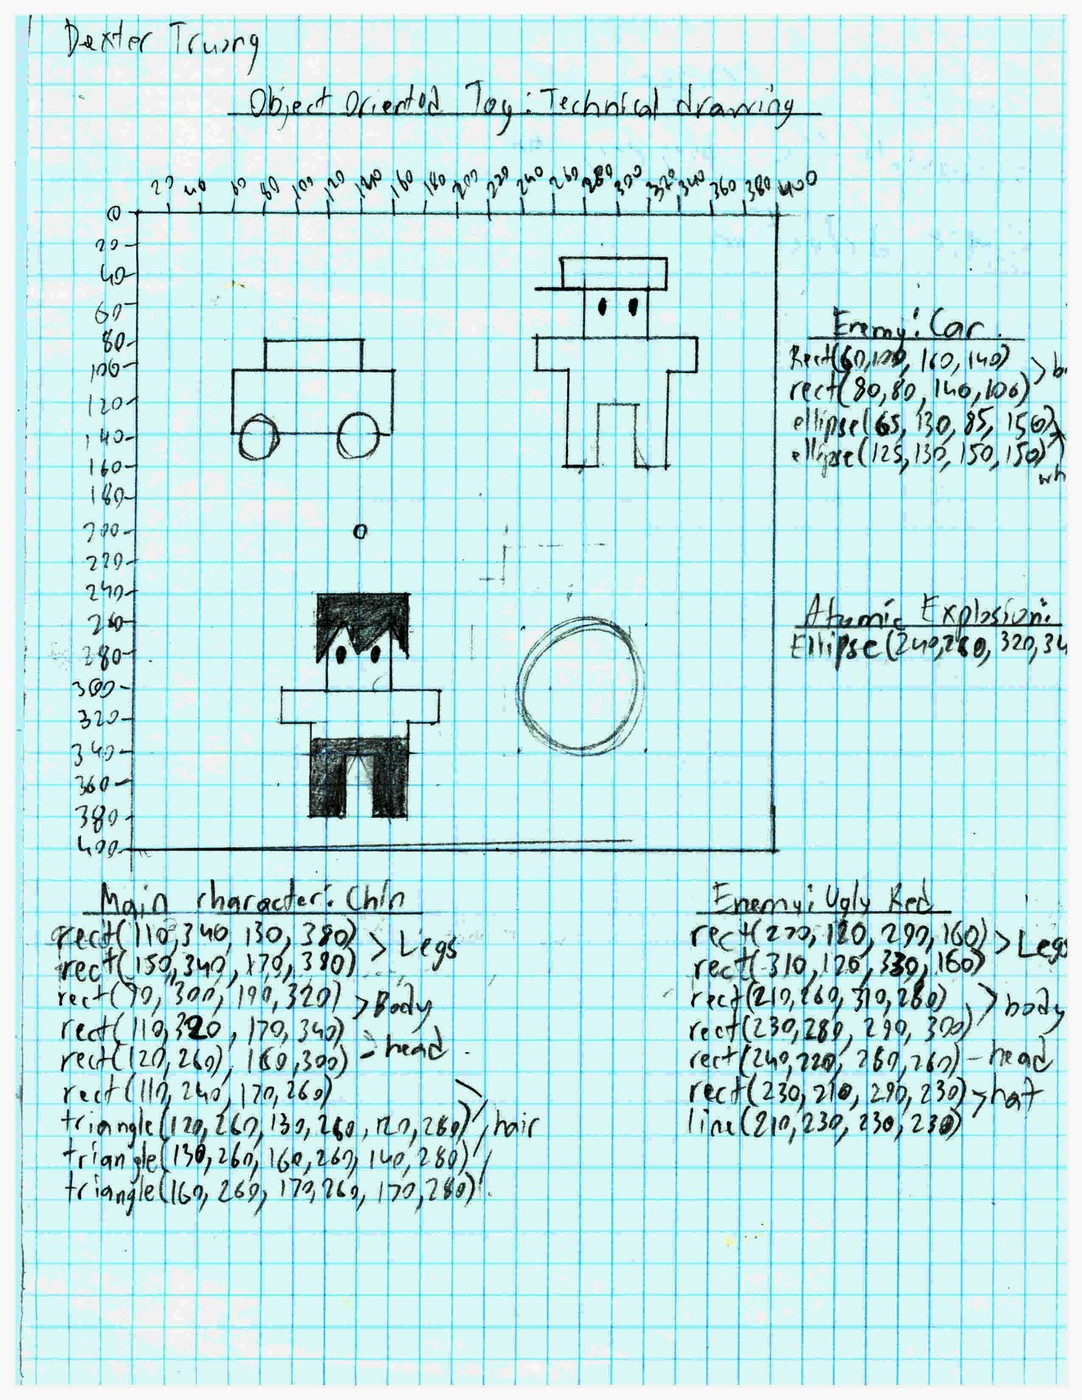 Dexter Truong
Object Oriented Toy: Technical drawing
20 40 60 80 100 120 140 160 180 200 220 240 260 280 300 320 340 360 380 400
0
20
40
60
80
100
120
140
160
180
200
220
240
260
280
300
320
340
360
380
400
Enemy: Car
Rect(60,100, 160, 140)
rect(80,80, 140,100) > b
ellipse(65, 130, 85, 150)
ellipse(125,130,150,150)
wh
Atomic Explosion:
Ellipse(240,260, 320,34
Main character: Chin
rect(110,340, 130, 380)
rect(150,340, 170, 380) > Legs
rect(70, 300, 190,320)
rect(110,320, 170,340) > Body
rect(120,260), 160,300) - head
rect(110,240, 170,260)
triangle(120,260,130,260,120,280)
triangle(130,260,160,260,140,280) hair
triangle(160,260,170,260,170,280)
Enemy: Ugly Red
rect(270,120, 290,160)
rect(310,120, 330,160) > Legs
rect(210,260,310,280)
rect(230,280, 290, 300) > body
rect(240,220, 280,260) - head
rect(230,210, 290,230) > hat
line(210,230,230,230)